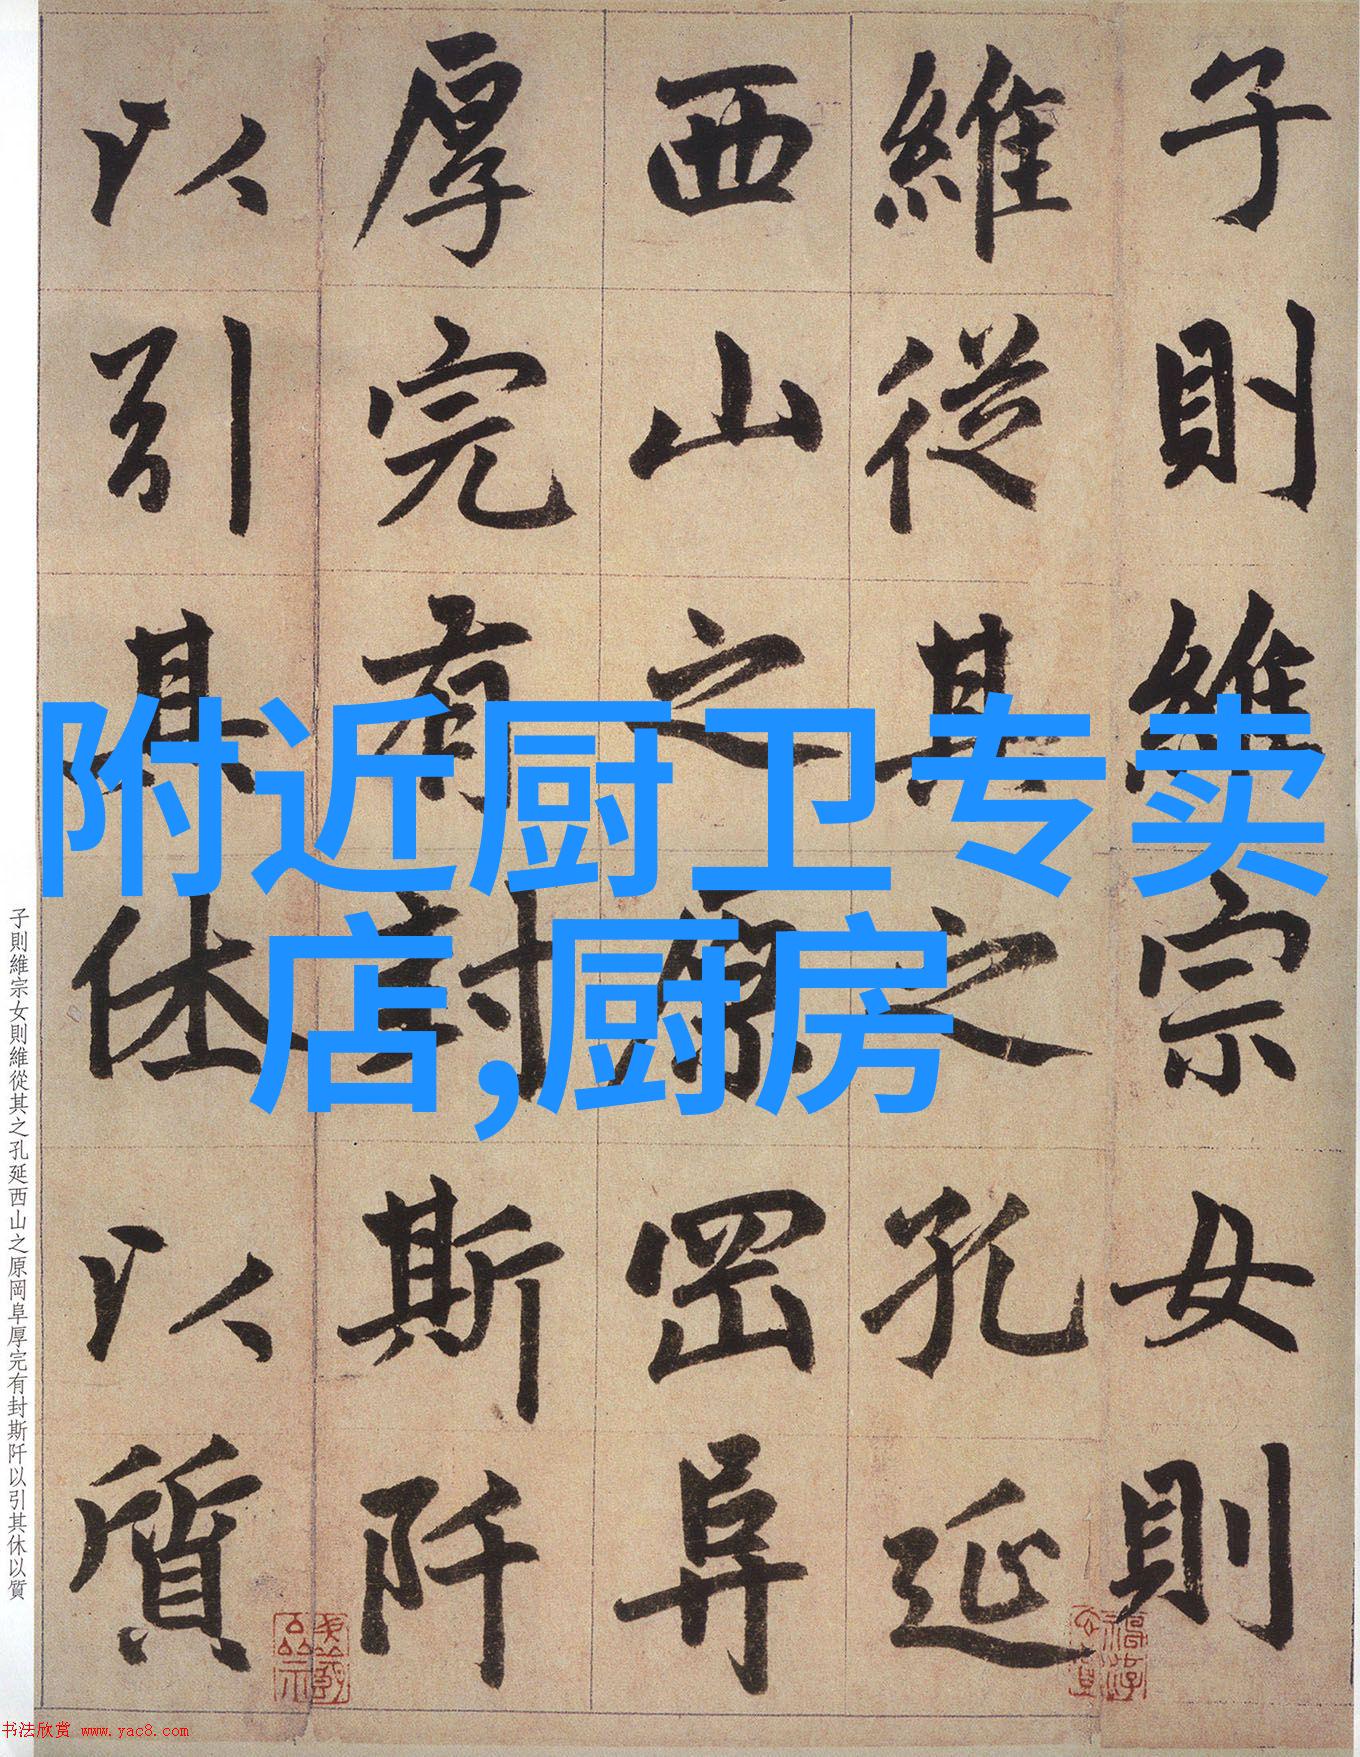 子則維宗女則
維從其之孔延
西山之原罡阜
厚完有封斯阡
以引其休以質
附近厨卫专卖
店,厨房
子則維宗女則維從其之孔延西山之原岡阜厚完有封斯阡以引其休以質
书法欣赏 www.yac8.com